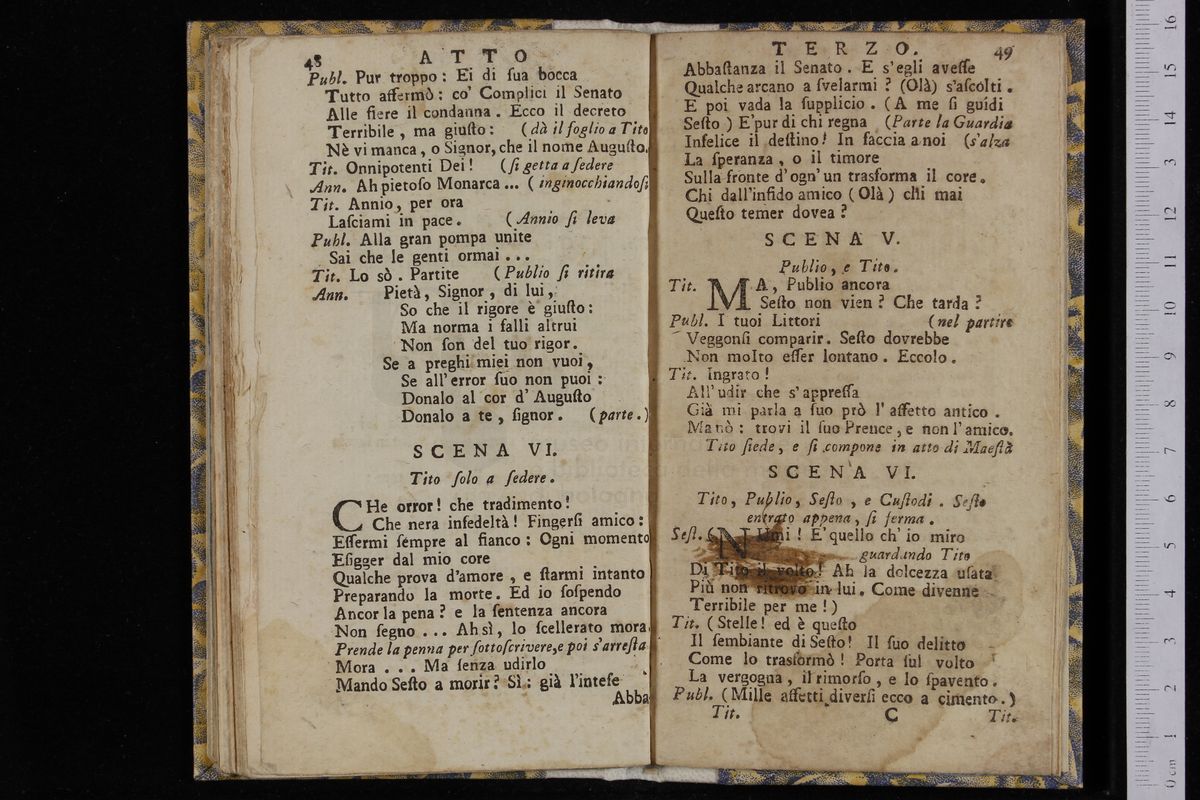 48 ATTO
Publ. Pur troppo : Ei di ſua bocca
Tutto affermò : co' Complici il Senato
Alle fiere il condanna . Ecco il decreto
Terribile , ma giuſto : (dà il foglio a Tito
Nè vi manca , o Signor, che il nome Auguſto.
Tit. Onnipotenti Dei ! (ſi getta a ſedere
Ann. Ah pietoſo Monarca ... ( inginocchiandoſi
Tit. Annio, per ora
Laſciami in pace . (Annio ſi leva
Publ. Alla gran pompa unite
Sai che le genti ormai ...
Tit. Lo sò . Partite (Publio ſi ritira
Ann. Pietà, Signor , di lui,
So che il rigore è giuſto :
Ma norma i falli altrui
Non ſon del tuo rigor .
Se a preghi miei non vuoi,
Se all'error ſuo non puoi :
Donalo al cor d'Auguſto
Donalo a te , ſignor . (parte.)
SCENA VI.
Tito ſolo a ſedere .
CHe orror ! che tradimento !
Che nera infedeltà ! Fingerſi amico :
Eſſermi ſempre al fianco : Ogni momento
Eſigger dal mio core
Qualche prova d'amore , e ſtarmi intanto
Preparando la morte . Ed io ſoſpendo
Ancor la pena ? e la ſentenza ancora
Non ſegno ... Ah sì, lo ſcellerato mora.
Prende la penna per ſottoſcrivere,e poi s'arreſta
Mora ... Ma ſenza udirlo
Mando Seſto a morir ? Sì : già l'inteſe
Abba
TERZO. 49
Abbaſtanza il Senato . E s'egli aveſſe
Qualche arcano a ſvelarmi ? (Olà) s'aſcolti .
E poi vada la ſupplicio . (A me ſi guidi
Seſto ) E'pur di chi regna (Parte la Guardia
Infelice il deſtino ! In faccia a noi (s'alza
La ſperanza , o il timore
Sulla fronte d'ogn'un trasforma il core .
Chi dall'infido amico (Olà ) chi mai
Queſto temer dovea ?
SCENA V.
Publio , e Tito .
Tit. MA, Publio ancora
Seſto non vien ? Che tarda ?
Publ. I tuoi Littori (nel partire
Veggonſi comparir . Seſto dovrebbe
Non molto eſſer lontano . Eccolo .
Tit. Ingrato !
All'udir che s'appreſſa
Già mi parla a ſuo prò l'affetto antico .
Ma nò : trovi il ſuo Prence, e non l'amico.
Tito ſiede , e ſi compone in atto di Maeſtà
SCENA VI.
Tito, Publio, Seſto , e Cuſtodi . Seſto
entrato appena, ſi ferma .
Seſt. ( NUmi ! E' quello ch' io miro
guardando Tito
Di Tito il volto ! Ah la dolcezza uſata
Più non ritrovo in lui . Come divenne
Terribile per me !)
Tit. (Stelle ! ed è queſto
Il ſembiante di Seſto ! Il ſuo delitto
Come lo trasformò ! Porta ſul volto
La vergogna , il rimorſo , e lo ſpavento .
Publ. (Mille affetti diverſi ecco a cimento.)
Tit. C Tit.
16
15
14
13
12
11
10
9
8
7
6
5
4
3
2
1
0 cm